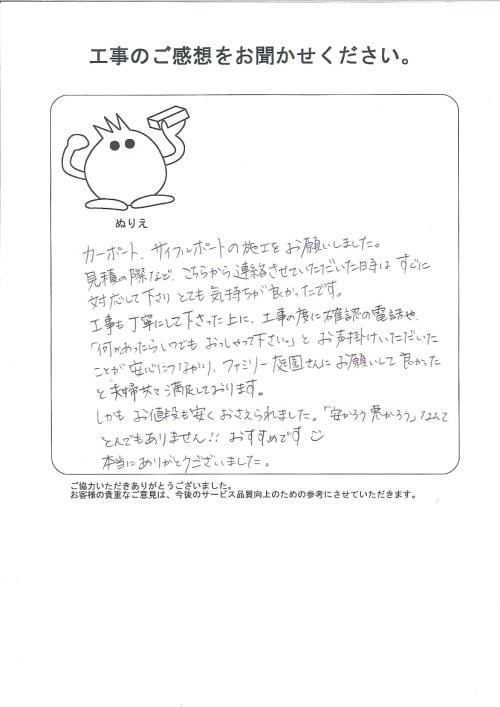 工事のご感想をお聞かせください。
ぬりえ
カーポート、サイクルポートの施工をお願いしました。
見積の際など、こちらから連絡させていただいた日時はすぐに
対応して下さりとても気持ちが良かったです。
工事も丁寧にして下さった上に、工事の度に確認の電話や、
「何かあったらいつでもおっしゃって下さい」とお声掛けいただいた
ことが安心につながり、ファミリー庭園さんにお願いして良かった
と夫婦共々満足しております。
しかもお値段も安くおさえられました。「安かろう悪かろう」なんて
とんでもありません!! おすすめです
本当にありがとうございました。
ご協力いただきありがとうございました。
お客様の貴重なご意見は、今後のサービス品質向上のための参考にさせていただきます。